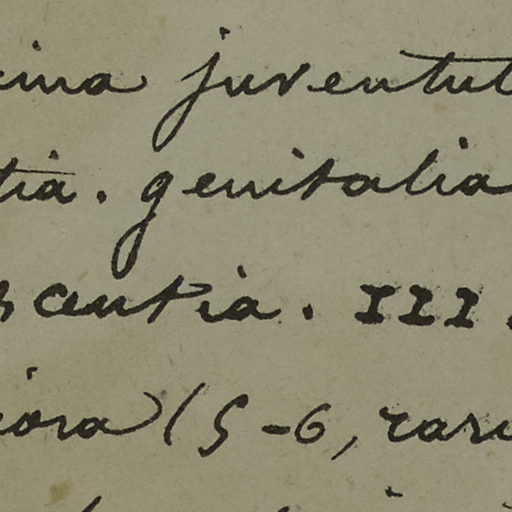 ina juventut
tia. genitalia
scentia. III.
iora (5-6, raru